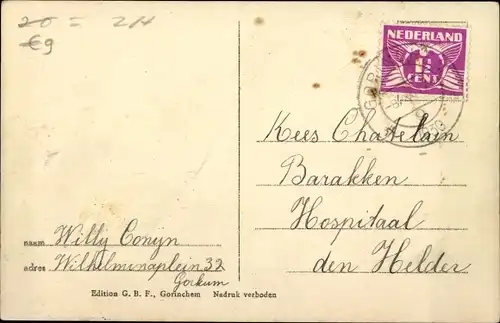 20 = 2H
€9
NEDERLAND
1½
CENT
Kees Chatelain
Barakken
Hospitaal
den Helder
naam Willy Conijn
adres Wilhelminaplein 32
Gorkum
Edition G. B. F., Gorinchem Nadruk verboden